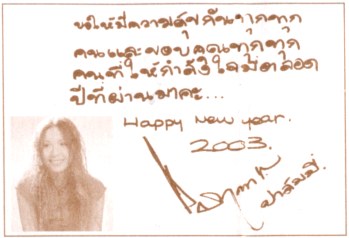 ขอให้มีความสุขกันทุกทุก
คนและขอบคุณทุกทุก
คนที่ให้กำลังใจมาตลอด
ปีที่ผ่านมาคะ...
Happy New year.
2003.
ปาล์มมี่.